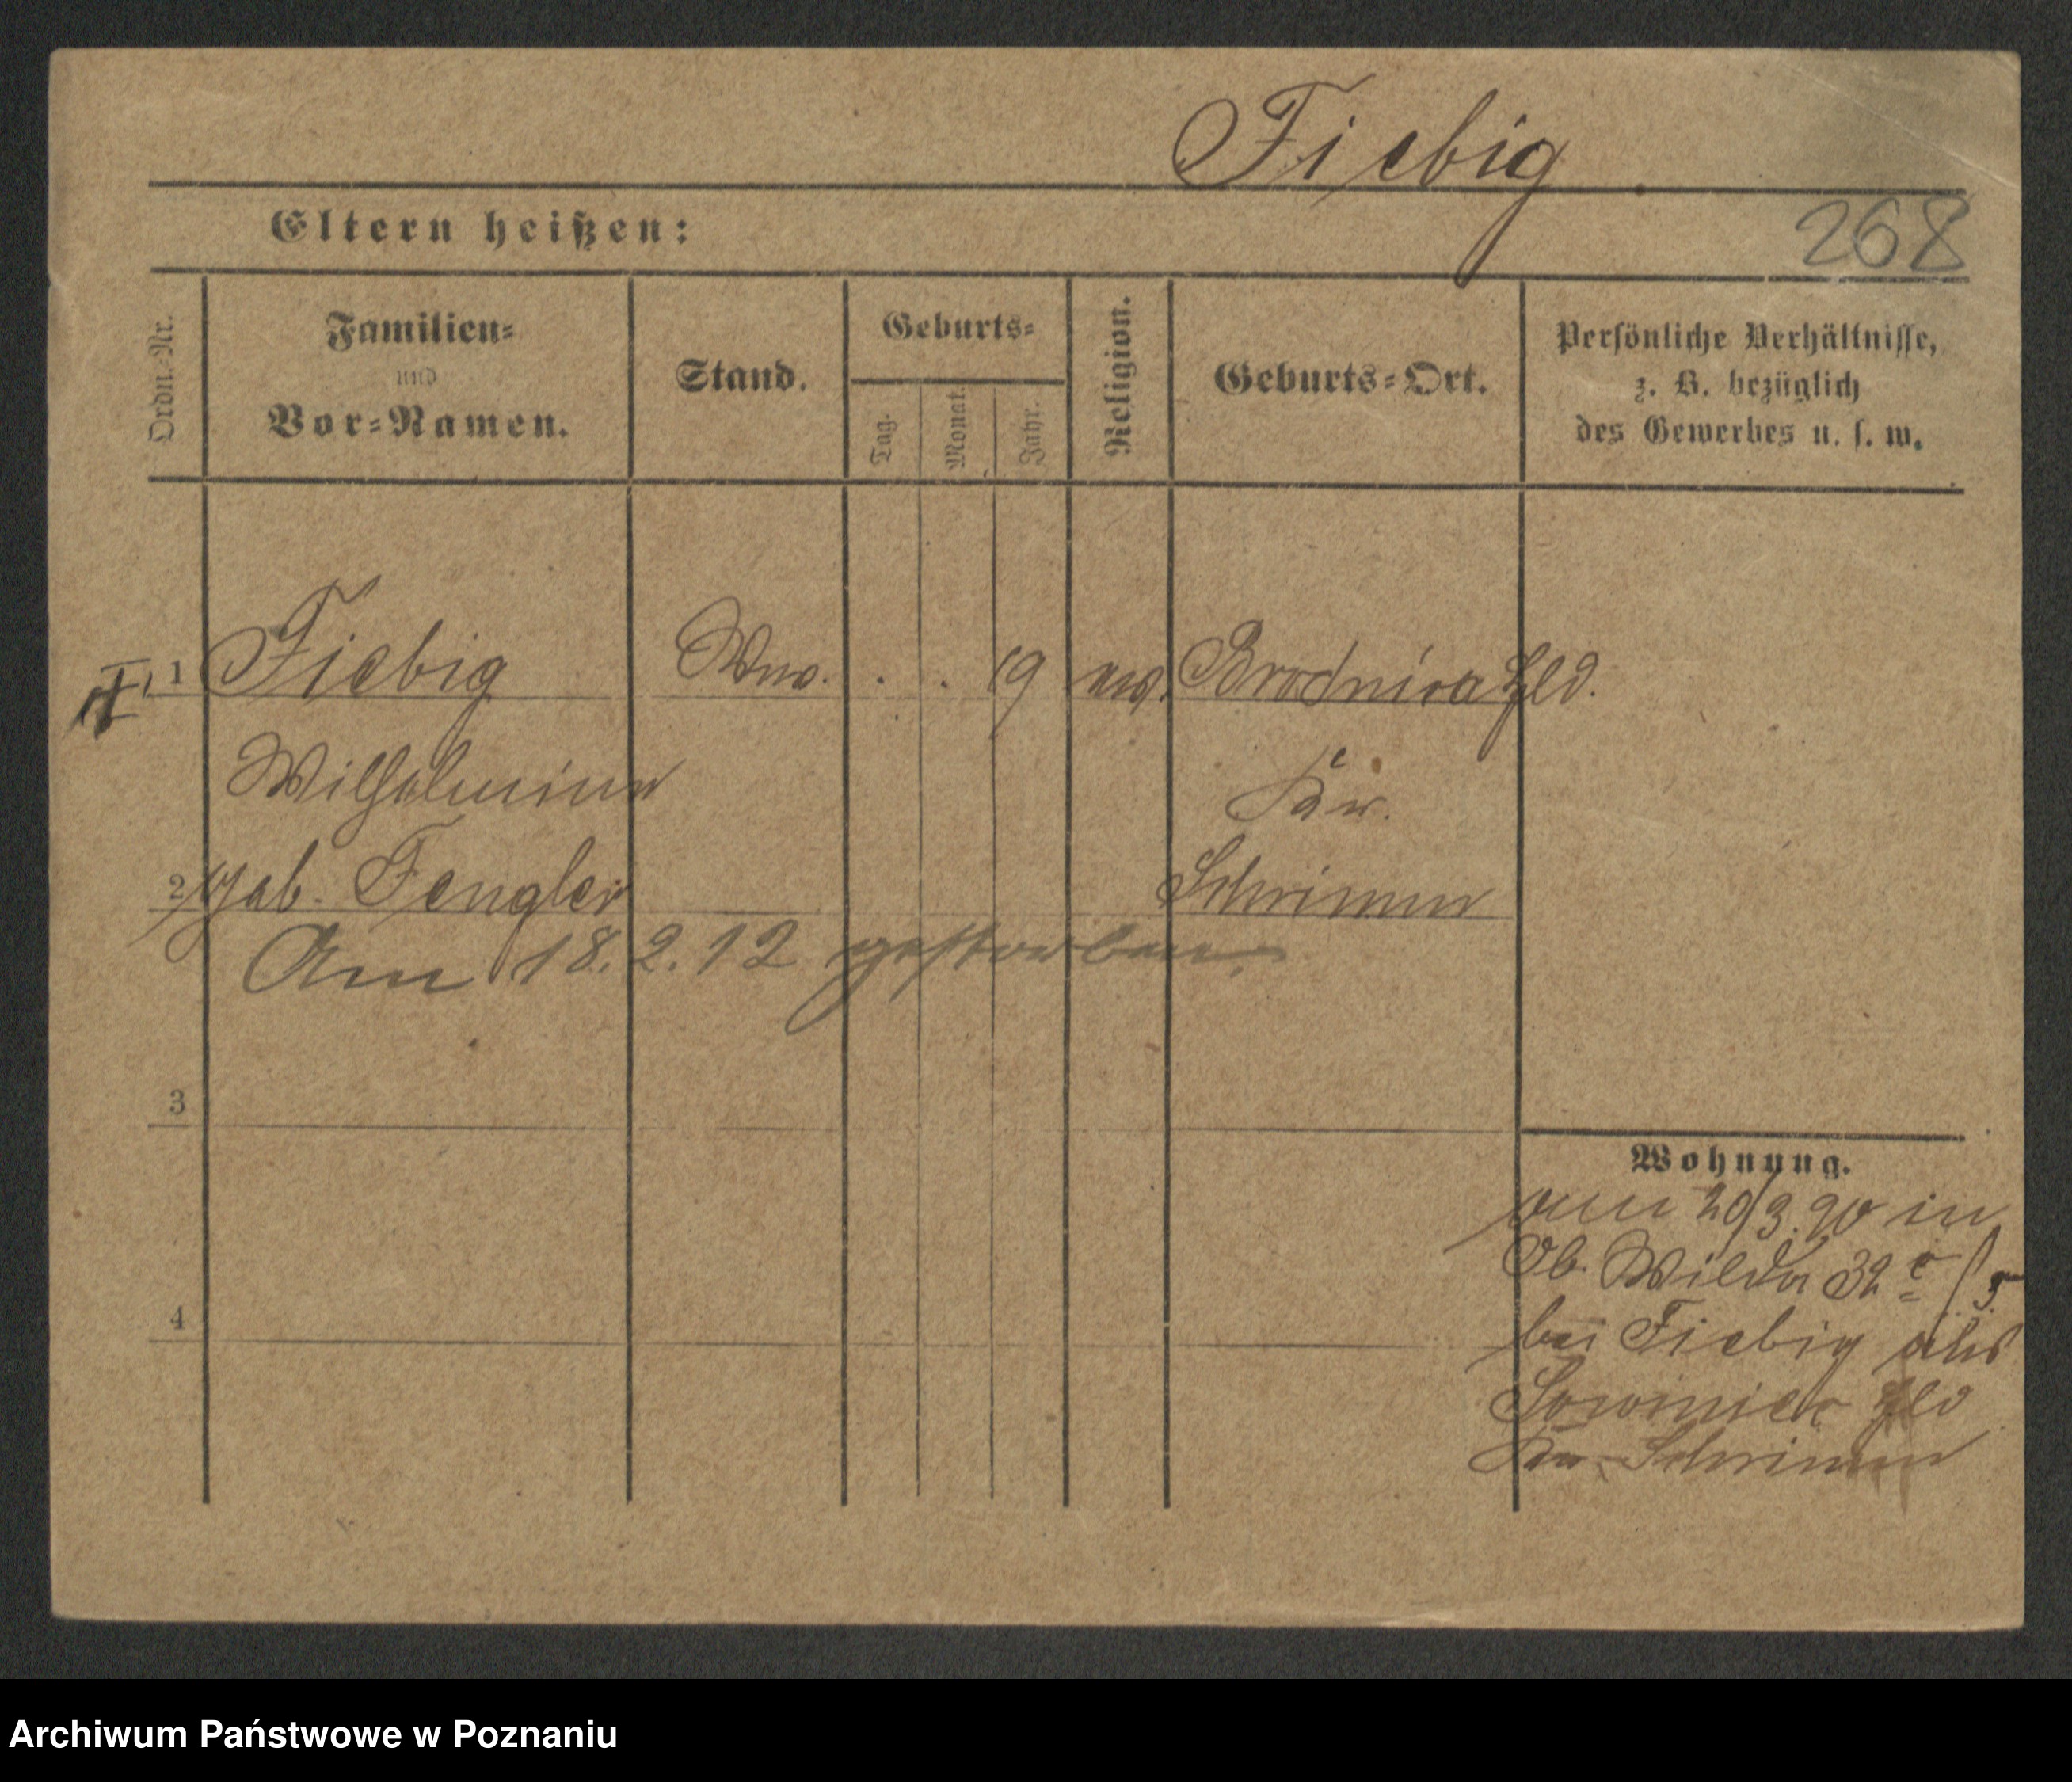 Fiebig
Eltern heißen:
268
Ordn.-Nr.
Familien-
und
Vor-Namen.
Stand.
Geburts-
Tag.
Monat.
Jahr.
Religion.
Geburts-Ort.
Persönliche Verhältnisse,
z. B. bezüglich
des Gewerbes u. s. w.
1 Fiebig Wwe. . . 19 ev. Brodnica Hld.
Wilhelmine Kr.
2 geb. Fengler Schrimm
Am 18.2.12 gestorben.
3
Wohnung.
am 20/3.90 in
Ob. Wilda 32
4
bei Fiebig aus
Hld
Kr. Schrimm
Archiwum Państwowe w Poznaniu